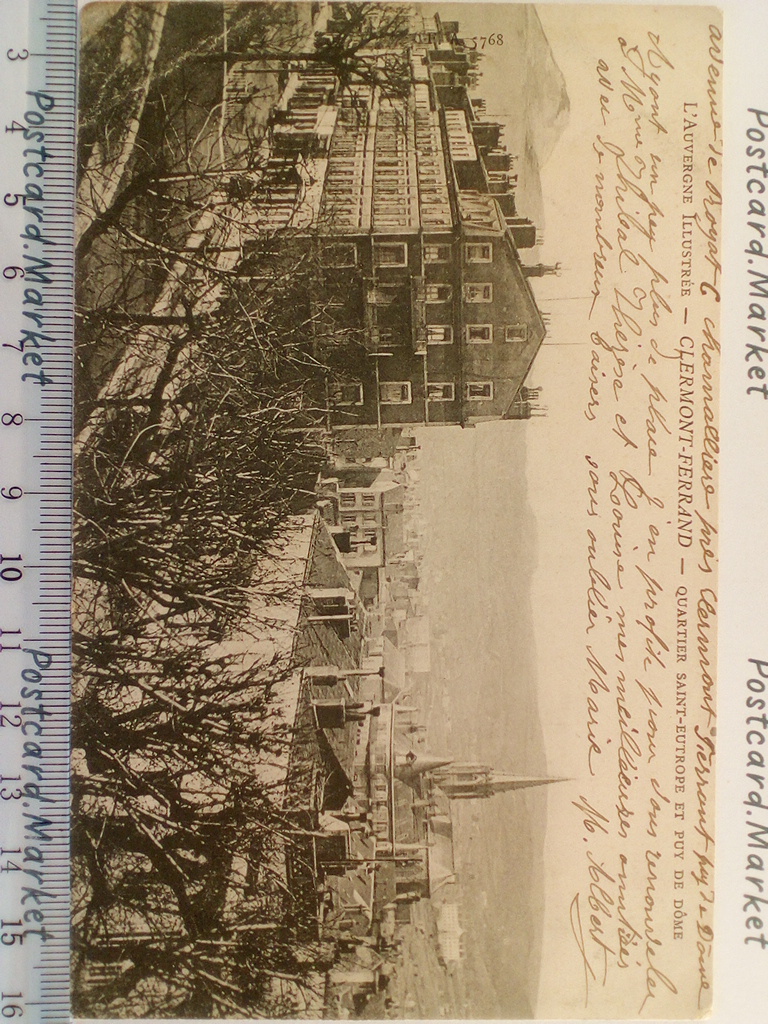 avenue de Royat C chamalliere près Clermont Ferrant puy de Dôme
L'AUVERGNE ILLUSTRÉE — CLERMONT-FERRAND — QUARTIER SAINT-EUTROPE ET PUY DE DÔME
Ayant un peu plus de place j'en profite pour vous renouveler
à Mme Thibal Thérèse et Louise mes meilleures amitiés
avec de nombreux baisers sans oublier Marie M. Albert
5768
Postcard.Market Postcard.Market
Postcard.Market Postcard.Market
3 4 5 6 7 8 9 10 11 12 13 14 15 16